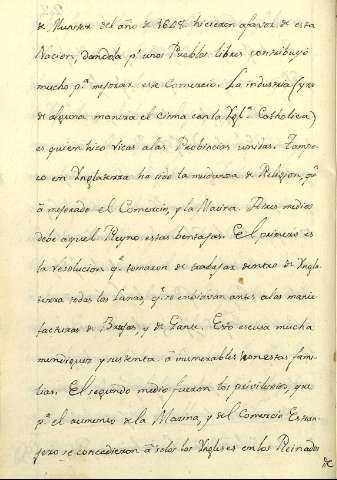 de Munster del año de 1648 hicieron afavor de esta
Nacion, dandola pʳ unos Pueblos libres contribuyò
mucho pᵃ mejorar ese Comercio. La industria (y no
de alguna manera el cisma con la Yglᵃ Catholica)
es quien hizo ricas alas Probincias unidas. Tampo
co en Ynglaterra ha sido la mudanza de Religion, qᵉ
â mejorado el Comercio, y la Marina. Otros medios
debe aquel Reyno estas bentajas. El primero es
la resolucion qᵉ tomaron de trabajar dentro de Yngla
terra todas las Lanas qᵉ se embiavan antes alas manu
facturas de Brujas, y de Gante. Esto escusa mucha
mendiguez y sustenta â inumerables honestas fami
lias. El segundo medio fueron los privilexios, que
pᵃ el aumento de la Marina, y del Comercio Estran
jero se concedieron â solos los Yngleses en los Reinados
de